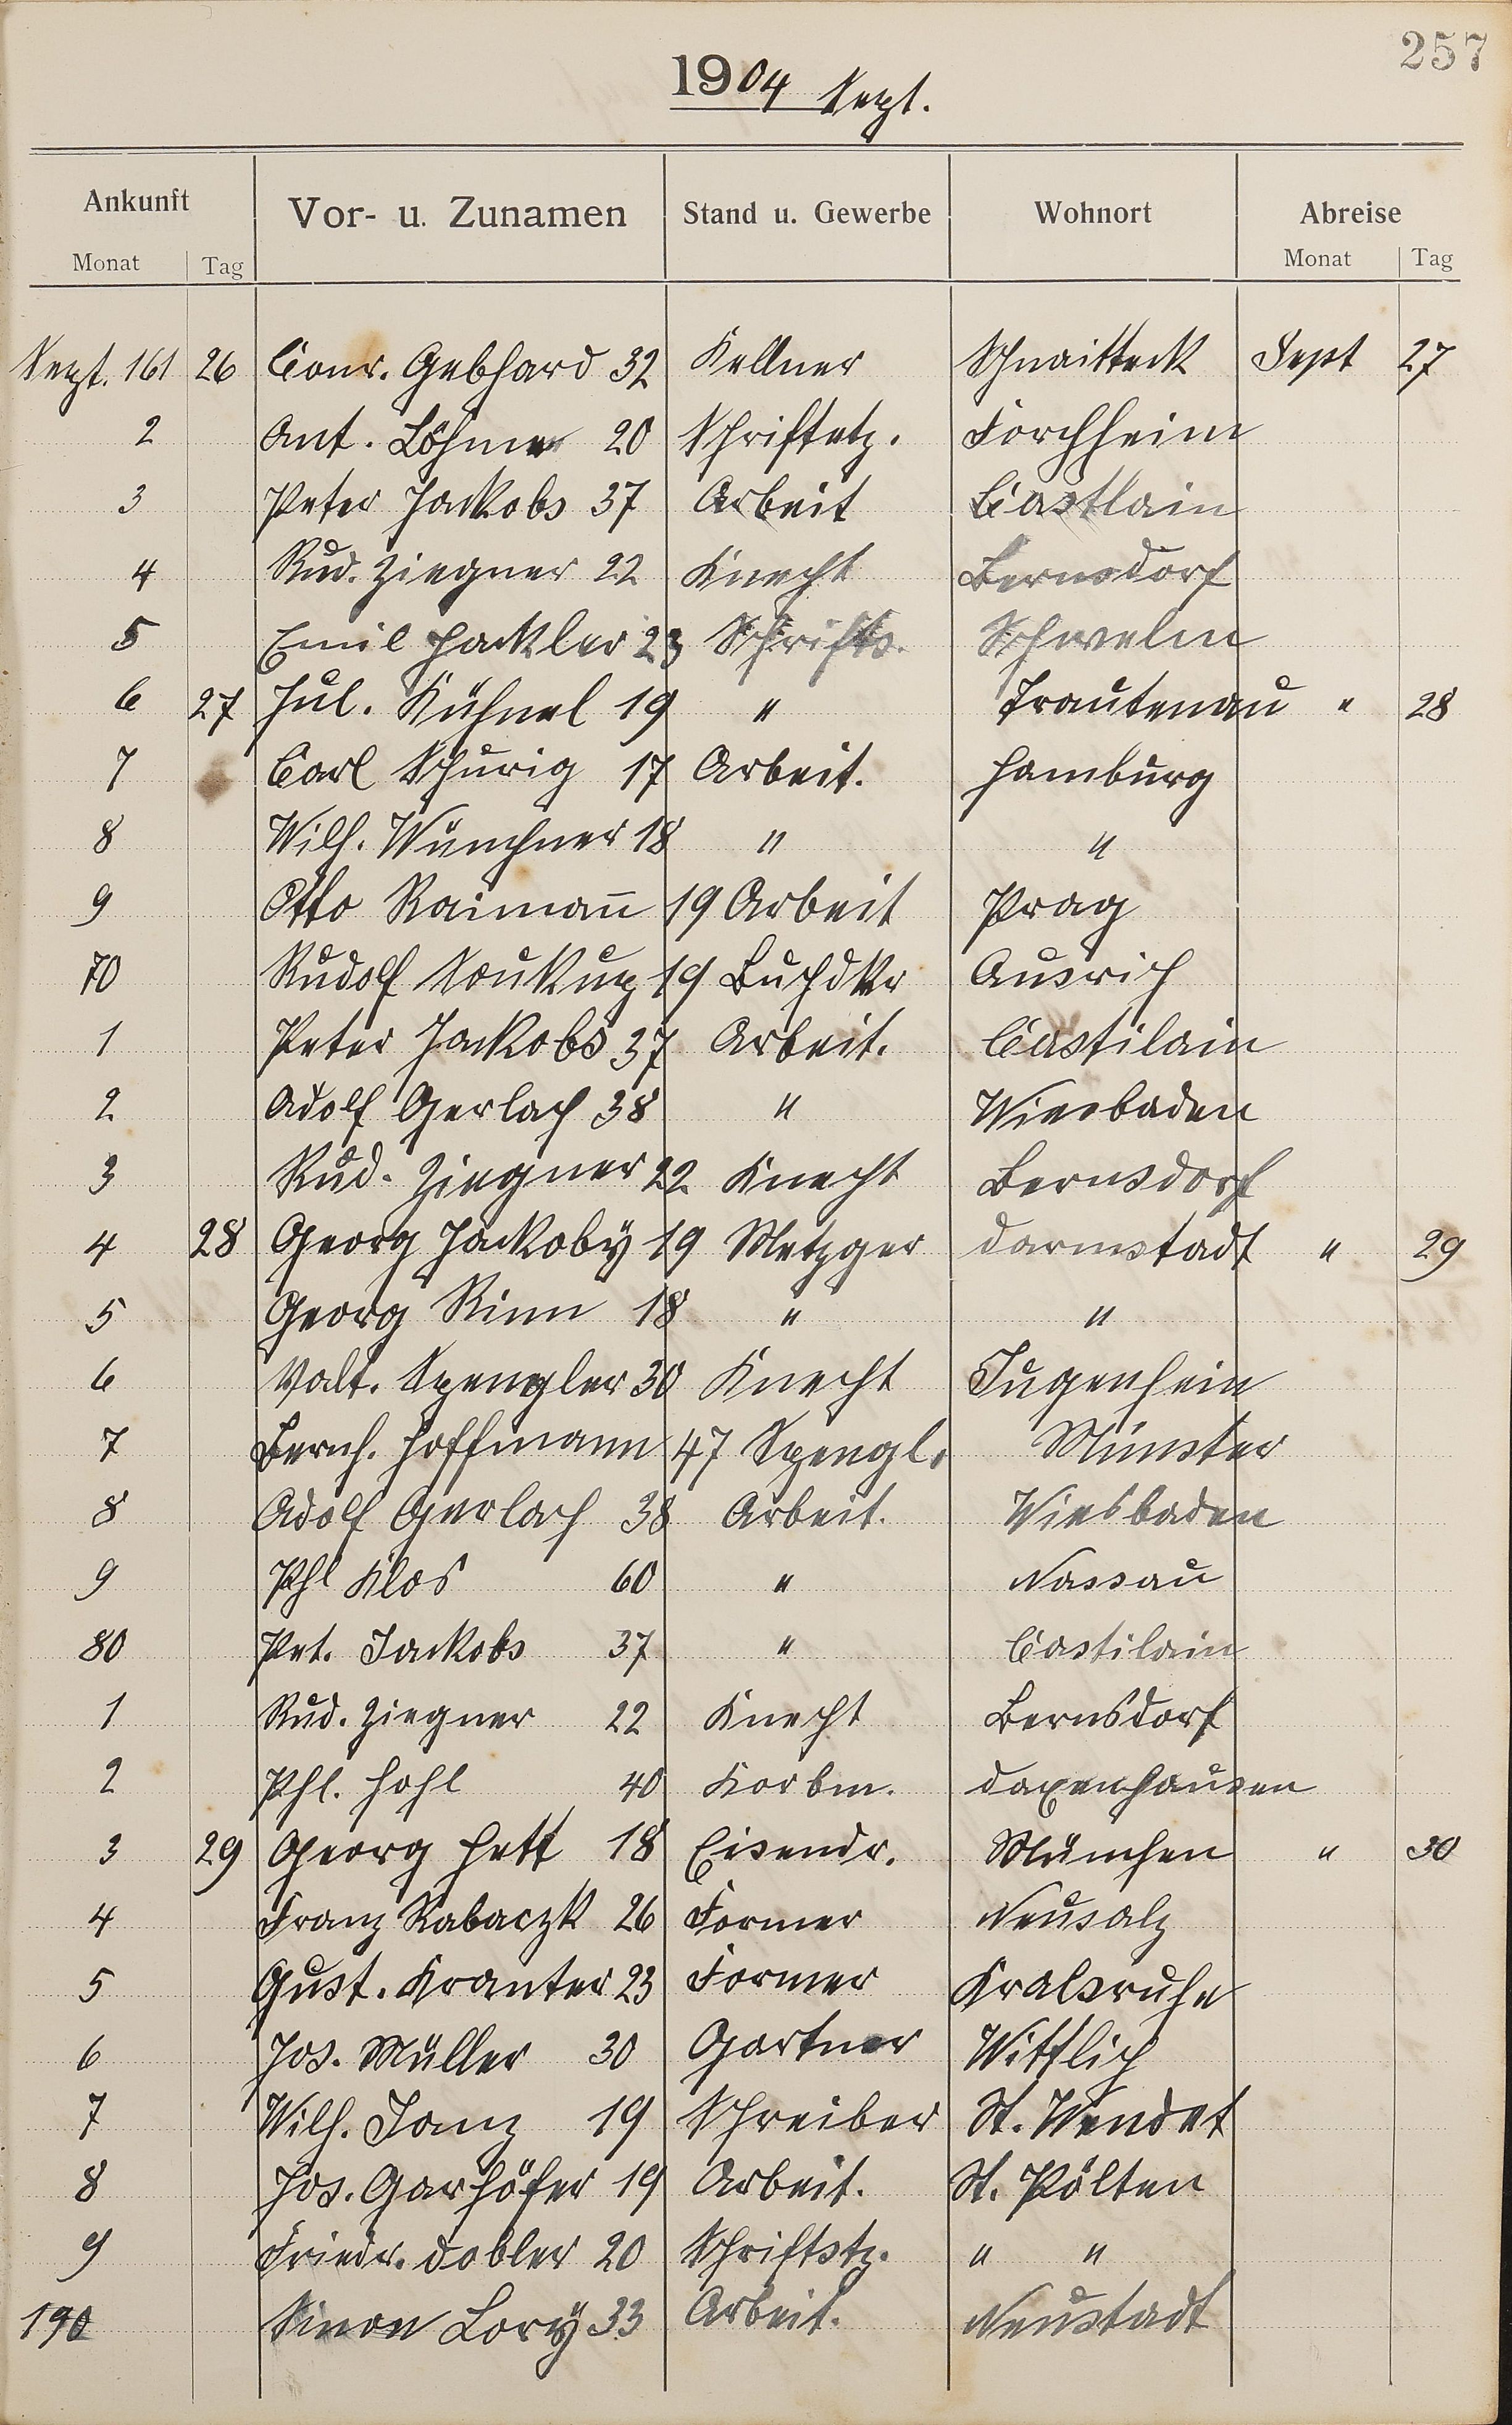 257
1904 Sept.
Ankunft Vor- u. Zunamen Stand u. Gewerbe Wohnort Abreise
Monat Tag Monat Tag
Sept. 161 26 Conr. Gebhard 32 Kellner Schnaitteck Sept 27
2 Ant. Löhme 20 Schriftetz. Forchheim
3 Peter Jackobs 37 Arbeit Castlain
4 Rud. Ziegner 22 Knecht Bernsdorf
5 Emil Hackler 23 Schrifts. Schwelm
6 27 Jul. Kühnel 19 " Trautenau " 28
7 Carl Schurig 17 Arbeit. Hamburg
8 Wilh. Wünchner 18 " "
9 Otto Raiman̄ 19 Arbeit Prag
70 Rudolf Soukup 19 Buchdkr
1 Peter Jackobs 37 Arbeit. Castilain
2 Adolf Gerlach 38 " Wiesbaden
3 Rud. Ziegner 22 Knecht Bernsdorf
4 28 Georg Jackoby 19 Metzger Darmstadt " 29
5 Georg Rinn 18 " "
6 Valt. Spengler 30 Knecht Jugenheim
7 Bernh. Hoffmann 47 Spengl. Münster
8 Adolf Gerlach 38 Arbeit. Wiesbaden
9 Phl Klos 60 " Nassau
80 Pet. Jackobs 37 " Castilain
1 Rud. Ziegner 22 Knecht Bernsdorf
2 Phl. Hohl 40 Korbm. Daxenhausen
3 29 Georg Hett 18 Eisendr. München " 30
4 Franz Rabaczk 26 Former Neusalz
5 Gust. Kranter 23 Former Kralsruhe
6 Jos. Müller 30 Gartner Wittlich
7 Wilh. Janz 19 Schreiber St. Wendet
8 Jos. Garhöfer 19 Arbeit. St. Pölten
9 Friedr. Dobler 20 Schriftstz. " "
190 Simon Lory 33 Arbeit. Neustadt